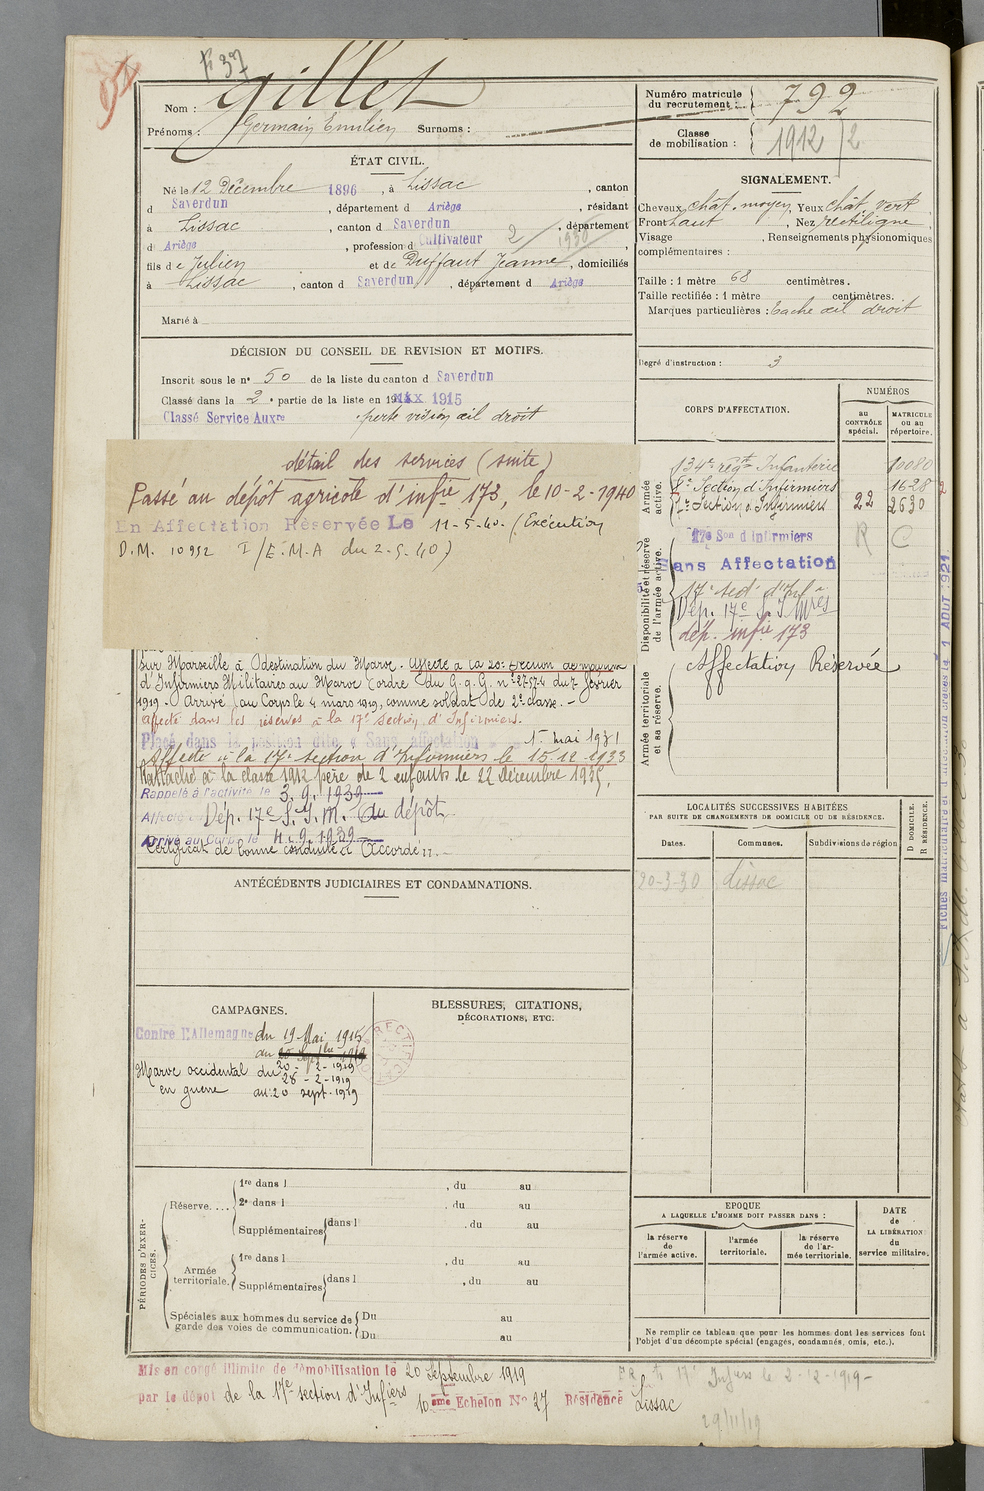 F 37
Nom : Gillet
Prénoms : Germain Emilien Surnoms :
Numéro matricule du recrutement : 792
Classe de mobilisation : 1912 / 2
ÉTAT CIVIL.
Né le 12 Décembre 1896, à Lissac, canton
d Saverdun, département d Ariège, résidant
à Lissac, canton d Saverdun, département
d Ariège, profession d Cultivateur 2 1930
fils de Julien et de Duffaut Jeanne, domiciliés
à Lissac, canton d Saverdun, département d Ariège
Marié à
SIGNALEMENT.
Cheveux chat. moyen, Yeux chat. vert,
Front haut, Nez rectiligne,
Visage , Renseignements physionomiques
complémentaires :
Taille : 1 mètre 68 centimètres.
Taille rectifiée : 1 mètre centimètres.
Marques particulières : Tache œil droit
Degré d'instruction : 3
DÉCISION DU CONSEIL DE REVISION ET MOTIFS.
Inscrit sous le n° 50 de la liste du canton d Saverdun
Classé dans la 2e partie de la liste en 1915
Classé Service Auxre perte vision œil droit
détail des services (suite)
Passé au dépôt agricole d'infie 173, le 10-2-1940
En Affectation Réservée Le 11-5-40. (Exécution
D.M. 10952 I/E.M.A du 2-5-40)
sur Marseille à destination du Maroc. Affecté à la 20e Section de marche
d'Infirmiers Militaires au Maroc (ordre du G.q.G. n° 27574 du 7 février
1919. Arrivé au Corps le 4 mars 1919, comme soldat de 2e classe. -
affecté dans les réserves à la 17e Section d'Infirmiers.
Placé dans la position dite « Sans affectation » 1er mai 1931
Affecté à la 17e section d'Infirmiers le 15.12.1933
Rattaché à la classe 1912 père de 2 enfants le 22 Décembre 1935.
Rappelé à l'activité le 3.9.1939
Affecté Dép. 17e S.I.M. du dépôt
Arrivé au Corps le 4.9.1939
Certificat de bonne conduite « Accordé ».-
CORPS D'AFFECTATION.
NUMÉROS
au CONTRÔLE spécial.
MATRICULE ou au répertoire.
Armée active.
134e régt Infanterie 10080
Section d'Infirmiers 1628
Section d'Infirmiers 22 2630
Disponibilité et réserve de l'armée active.
17e Son d'Infirmiers R C
Sans Affectation
17e sect. d'Inf.
Dép. 17e S.I.Mres
dép. infie 173
Armée territoriale et sa réserve.
Affectation Réservée
LOCALITÉS SUCCESSIVES HABITÉES
PAR SUITE DE CHANGEMENTS DE DOMICILE OU DE RÉSIDENCE.
Dates. Communes. Subdivisions de région.
D DOMICILE. R RÉSIDENCE.
20-3-30 Lissac
ANTÉCÉDENTS JUDICIAIRES ET CONDAMNATIONS.
CAMPAGNES.
Contre l'Allemagne du 19 Mai 1915
au 20 - 2 - 1919
Maroc occidental du 28 - 2 - 1919
en guerre au 20 sept. 1919
BLESSURES, CITATIONS,
DÉCORATIONS, ETC.
PÉRIODES D'EXERCICES.
Réserve....
1re dans l , du au
2e dans l , du au
Supplémentaires dans l , du au
Armée territoriale.
1re dans l , du au
Supplémentaires dans l , du au
Spéciales aux hommes du service de garde des voies de communication.
Du au
Du au
EPOQUE
A LAQUELLE L'HOMME DOIT PASSER DANS :
la réserve de l'armée active.
l'armée territoriale.
la réserve de l'armée territoriale.
DATE de LA LIBÉRATION du service militaire.
Ne remplir ce tableau que pour les hommes dont les services font
l'objet d'un décompte spécial (engagés, condamnés, omis, etc.).
Mis en congé illimité de démobilisation le 20 Septembre 1919
par le dépôt de la 17e section d'Infiers 10ème Echelon N° 27 Résidence Lissac
17e Infers le 2-12-1919-
29/11/19